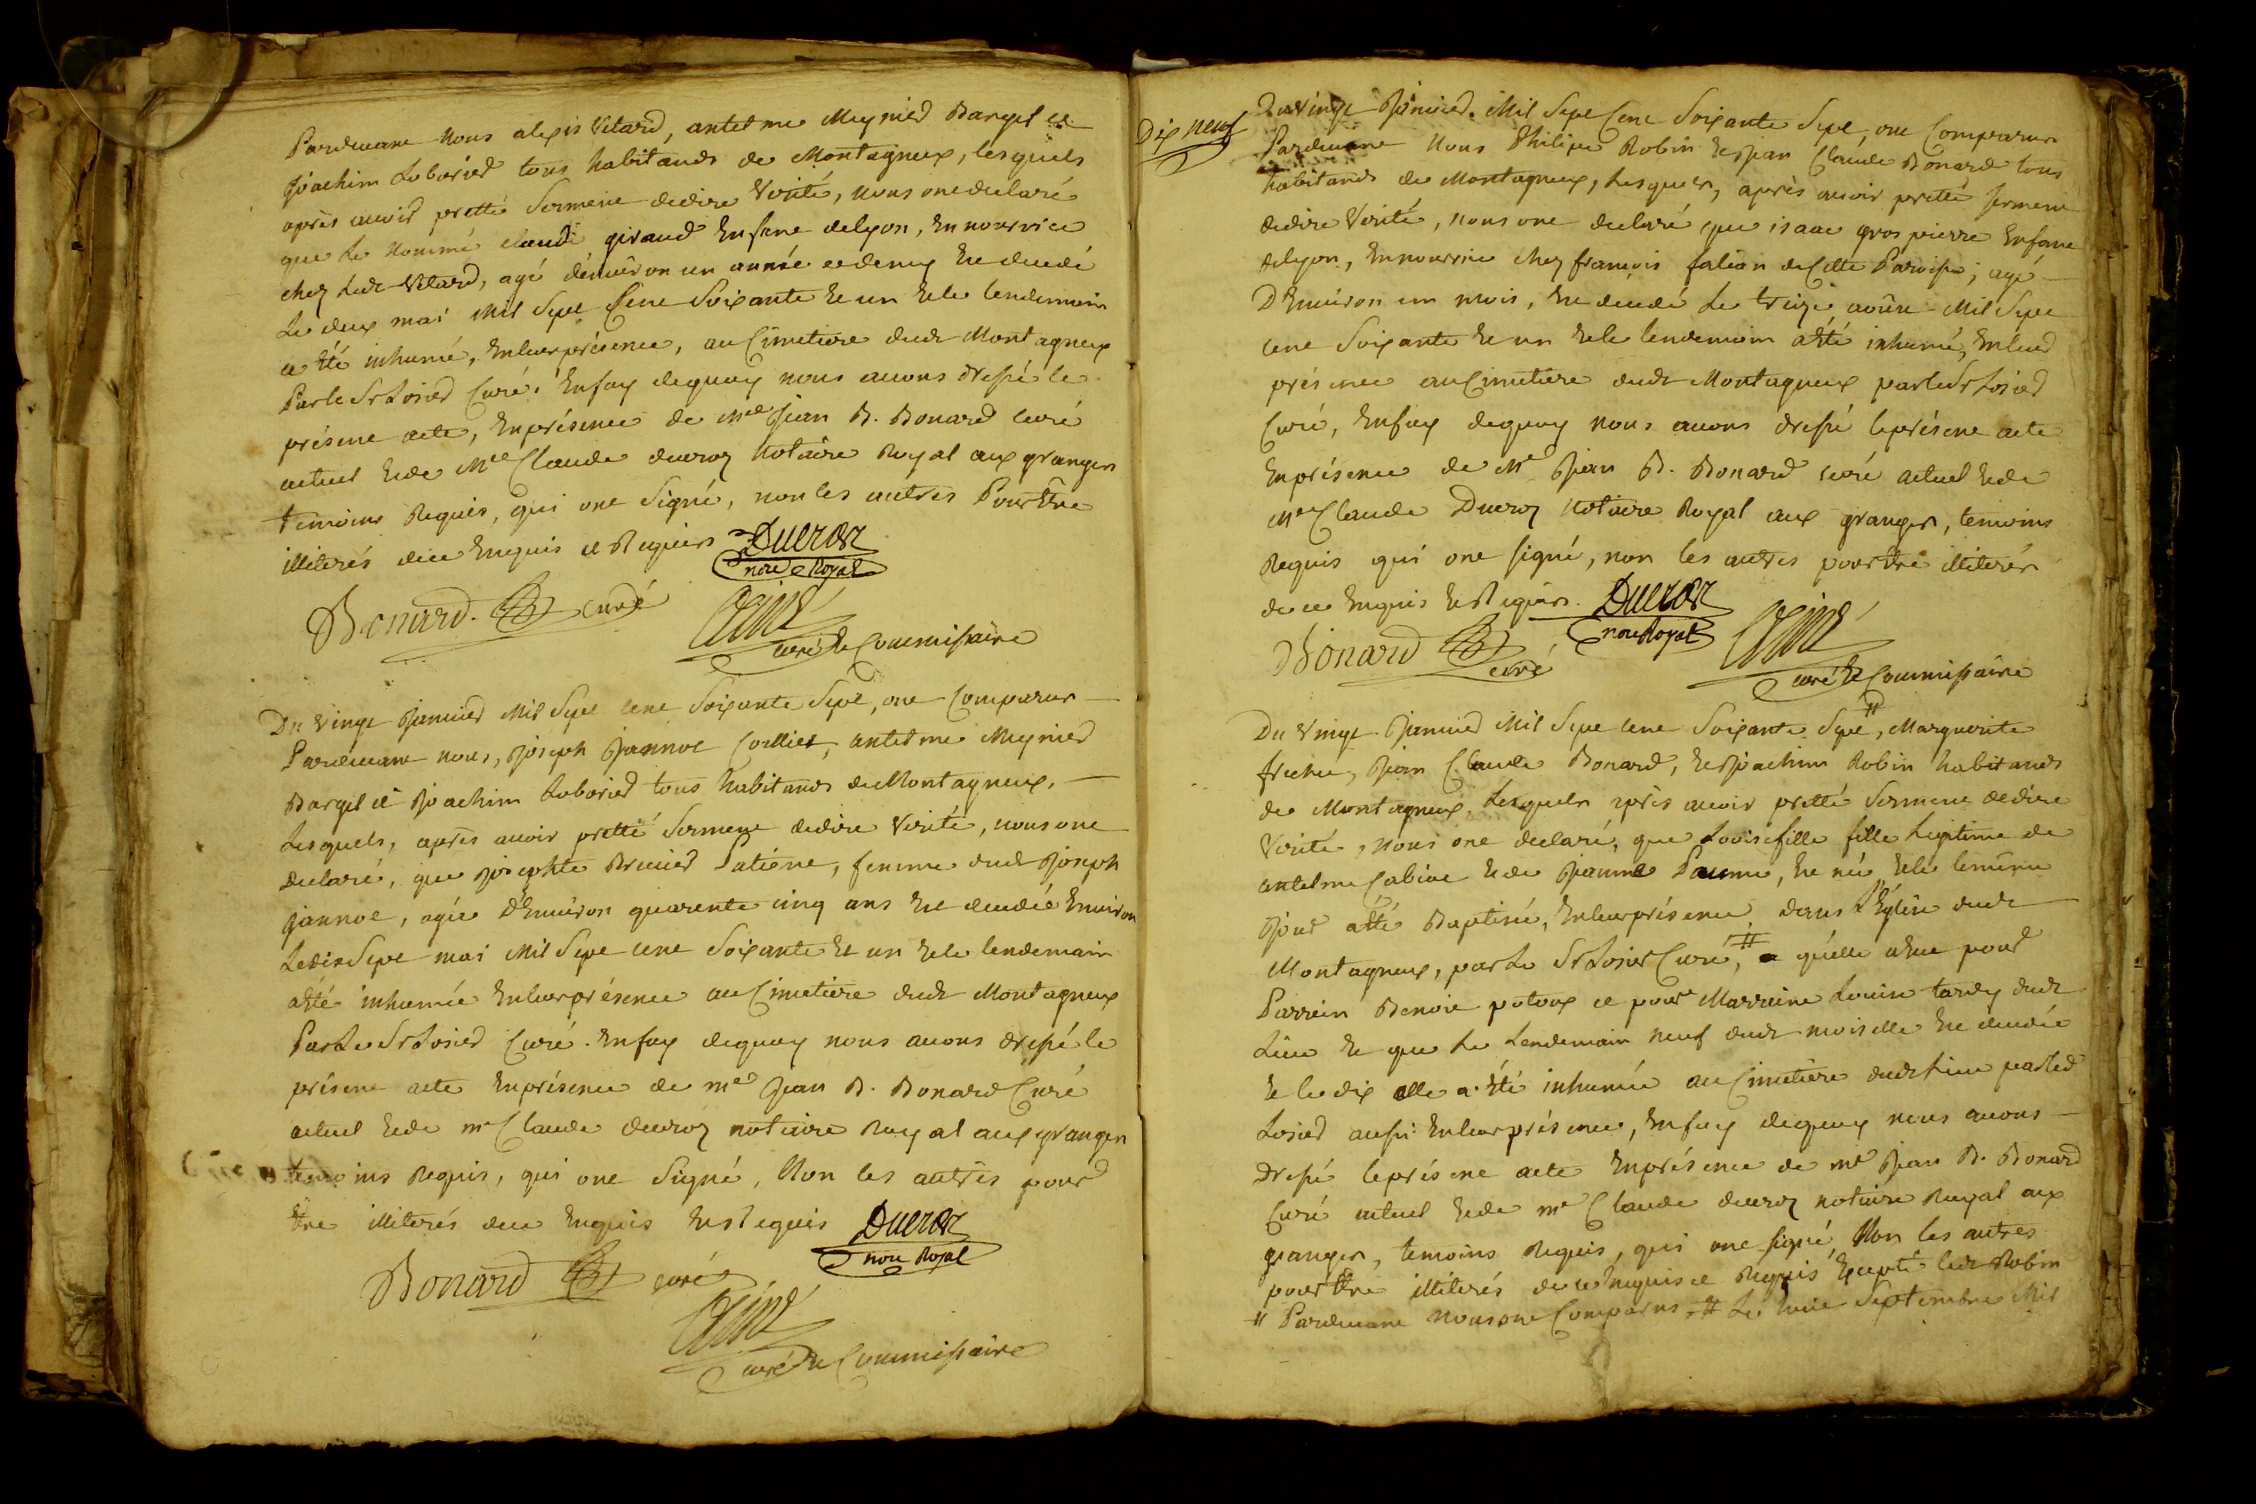 Pardevant nous alexis Vitard, antelme Meynied Bargel et
Joachim Loboried tous habitands de Montagneux, lesquels
après avoir pretté serment dedire Verité, nous ont declaré
que Le nommé claude giraud Enfant delyon, En nourrice
chez Ledt Vitard, agé d'environ un année et demy Est decedé
Le deux mai Mil Sept Cent Soixante Et un Et le lendemain
a Eté inhumé, En leur présence, au Cimetiere dudt Montagneux
Par le Sr Losied Curé. En foy dequoy nous avons dressé le
présent acte, En présence de Me Jean B. Bonard curé
actuel Et de Me Claude ducroz Notaire Royal aux granges
temoins Requis, qui ont Signé, non les autres Pour Etre
illiterés de ce Enquis et Requis
Ducroz
nore Royal
Bonard curé
curé Et Commissaire
Du Vingt Janvied Mil Sept cent Soixante Sept, ont Comparus
Pardevant nous, Joseph Jannot Collied, antelme Meynied
Bargel et Joachim Loboried tous habitands de Montagneux,
Lesquels, après avoir pretté serment dedire Verité, nous ont
declaré, que Josephte Brevied Patiene, femme dudt Joseph
jannot, agée D'Environ quarente cinq ans Est decedée Environ
Le dix Sept mai Mil Sept cent Soixante Et un Et le lendemain
a Eté inhumée En leur présence au Cimetiere dudt Montagneux
Par Le Sr Losied Curé. En foy dequoy nous avons dressé le
présent acte En présence de me Jean B. Bonard Curé
actuel Et de me Claude ducroz notaire Royal aux granges
temoins Requis, qui ont Signé, Non les autres pour
Etre illiterés de ce Enquis Et Requis
Ducroz
nore Royal
Bonard curé
curé Et Commissaire
Dix neuf
Du Vingt Janvied Mil Sept Cent Soixante Sept, ont Comparus
Pardevant Nous Philipe Robin Et Jean Claude Bonard tous
habitands de Montagneux, Lesquels, après avoir pretté serment
dedire Verité, nous ont declaré que isaac gros pierre Enfant
delyon, En nourrice chez françois falcon de Cette Paroisse, agé
D'Environ un mois, Est decedé Le treize aoûst Mil Sept
cent Soixante Et un Et le lendemain a Eté inhumé, En leur
présence au Cimetiere dudt Montagneux par le Sr Losied
Curé, En foy dequoy nous avons dressé le présent acte
En présence de Me Jean B. Bonard curé actuel Et de
Me Claude Ducroz Notaire Royal aux granges, temoins
Requis qui ont signé, non les autres pour Etre illiterés
de ce Enquis Et Requis.
Ducroz
nore Royal
Bonard curé
curé Et Commissaire
Du Vingt Janvied Mil Sept cent Soixante Sept, # Marguerite
freche, Jean Claude Bonard, Et Joachim Robin habitands
de Montagneux, Lesquels après avoir pretté Serment dedire
Verité, nous ont declaré, que Louise fille fille Legitime de
antelme Cabiat Et de Jeanne Paume, Est née Et le lemême
Jour a Eté Baptisée, En leur présence, dans L'Eglise dudt
Montagneux, par Le Sr Losied Curé, # quelle a Eue pour
Parrein Benoit putoux et pour Marraine Louise tardy dudt
Lieu Et que Le Lendemain neuf dudt mois elle Est decedée
Et le dix elle a Eté inhumée au Cimetiere dudt Lieu par led
Losied aussi En leur présence, En foy dequoy nous avons
dressé le présent acte En présence de me Jean B. Bonard
Curé actuel Et de me Claude ducroz notaire Royal aux
granges, temoins Requis, qui ont signé, Non les autres
pour Etre illiterés de ce Enquis et Requis Excepté ledt Robin
# Pardevant Nous ont Comparus # Le huit Septembre Mil